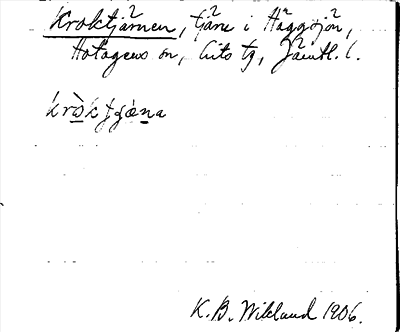 Kroktjärnen, tjärn i Häggsjön,
Hotagens sn, Lits tg, Jämtl. l.
K. B. Wiklund 1906.